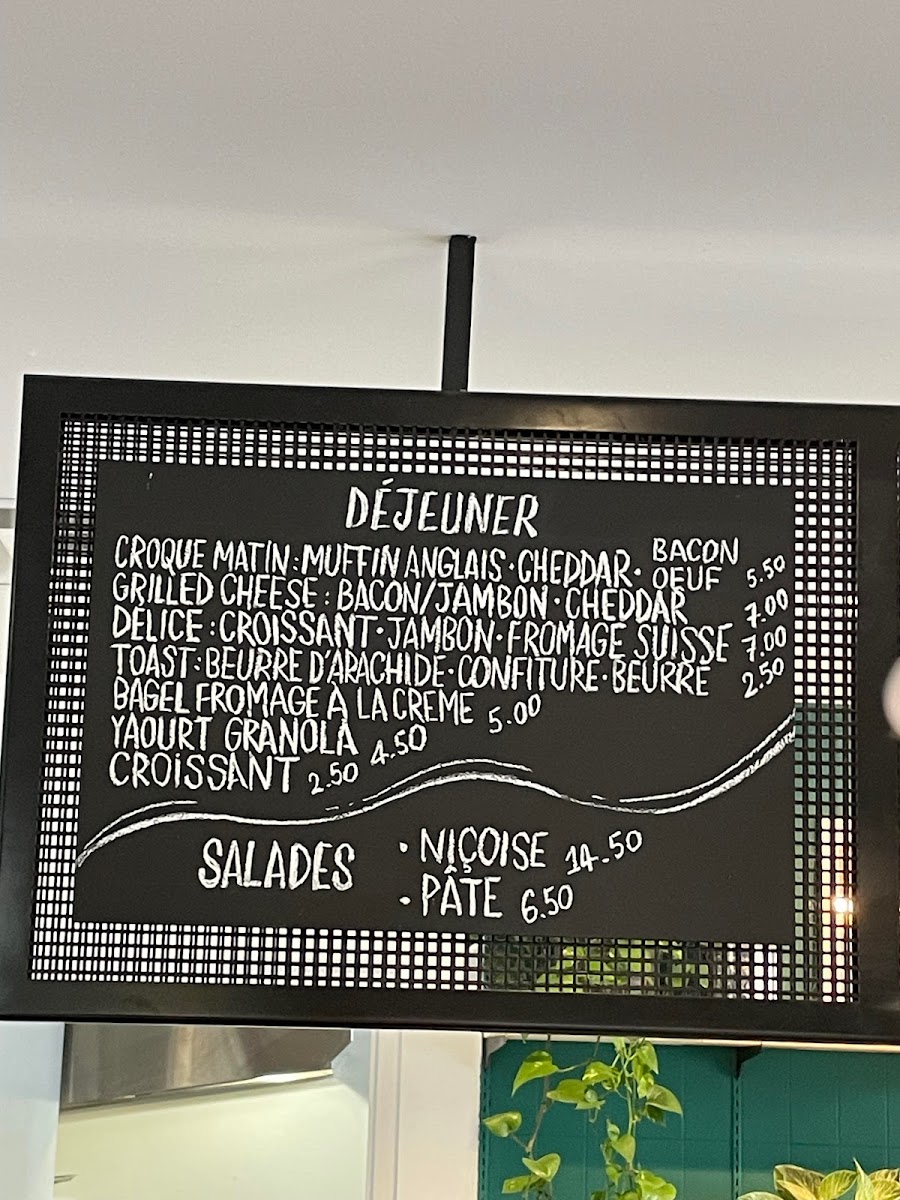 DÉJEUNER
CROQUE MATIN : MUFFIN ANGLAIS · CHEDDAR · BACON OEUF 5.50
GRILLED CHEESE : BACON/JAMBON · CHEDDAR 7.00
DÉLICE : CROISSANT · JAMBON · FROMAGE SUISSE 7.00
TOAST : BEURRE D'ARACHIDE · CONFITURE · BEURRE 2.50
BAGEL FROMAGE À LA CRÈME 5.00
YAOURT GRANOLA 4.50
CROISSANT 2.50
SALADES
· NIÇOISE 14.50
· PÂTE 6.50